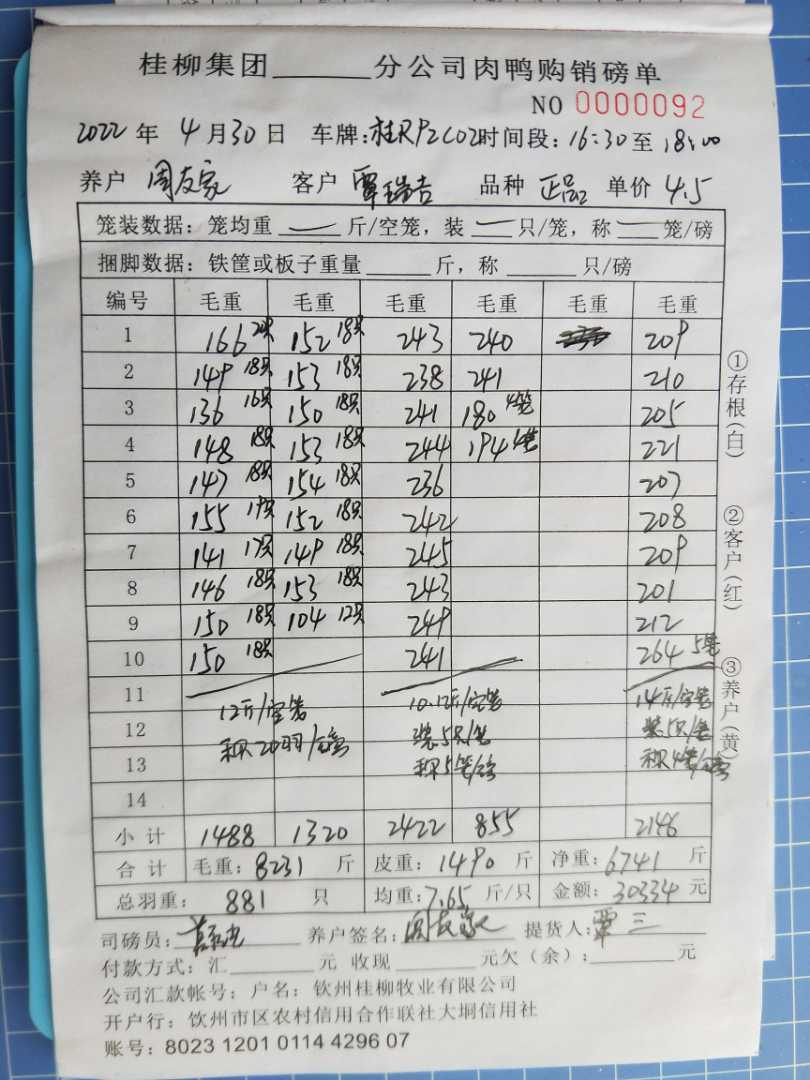 桂柳集团______分公司肉鸭购销磅单
NO 0000092
2022年 4月30日 车牌:桂RP2C02 时间段:16:30至18:00
养户 周友家 客户 覃瑞吉 品种 正品 单价 4.5
笼装数据:笼均重 — 斤/空笼,装 — 只/笼,称 — 笼/磅
捆脚数据:铁筐或板子重量______斤,称______只/磅
编号 毛重 毛重 毛重 毛重 毛重 毛重
1 166 152 18只 243 240 209
2 149 18只 153 18只 238 241 210
3 136 16只 150 18只 241 180 4笼 205
4 148 18只 153 18只 244 194 4笼 221
5 147 18只 154 18只 236 207
6 155 19只 152 18只 242 208
7 141 17只 149 18只 245 209
8 146 18只 153 18只 243 201
9 150 18只 104 12只 249 212
10 150 18只 241 264 5笼
11 12斤/空笼 10.12斤/空笼 14斤/空笼
12 称20羽/磅 装5只/笼 装5只/笼
13 称5笼/磅 称4笼/磅
14
小计 1488 1320 2422 855 2146
合计 毛重:8231 斤 皮重:1490 斤 净重:6741 斤
总羽重: 881 只 均重:7.65 斤/只 金额:30334 元
司磅员: 养户签名:周友家 提货人:覃三
付款方式:汇______元 收现______元欠(余):______元
公司汇款帐号:户名:钦州桂柳牧业有限公司
开户行:钦州市区农村信用合作联社大垌信用社
账号:8023 1201 0114 4296 07
①存根(白)
②客户(红)
③养户(黄)